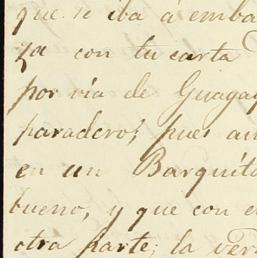 que se iba á emba
za con tu carta
por vía de Guayaq
paradero; pues au
en un Barquito
bueno, y que con e
otra parte; la ver